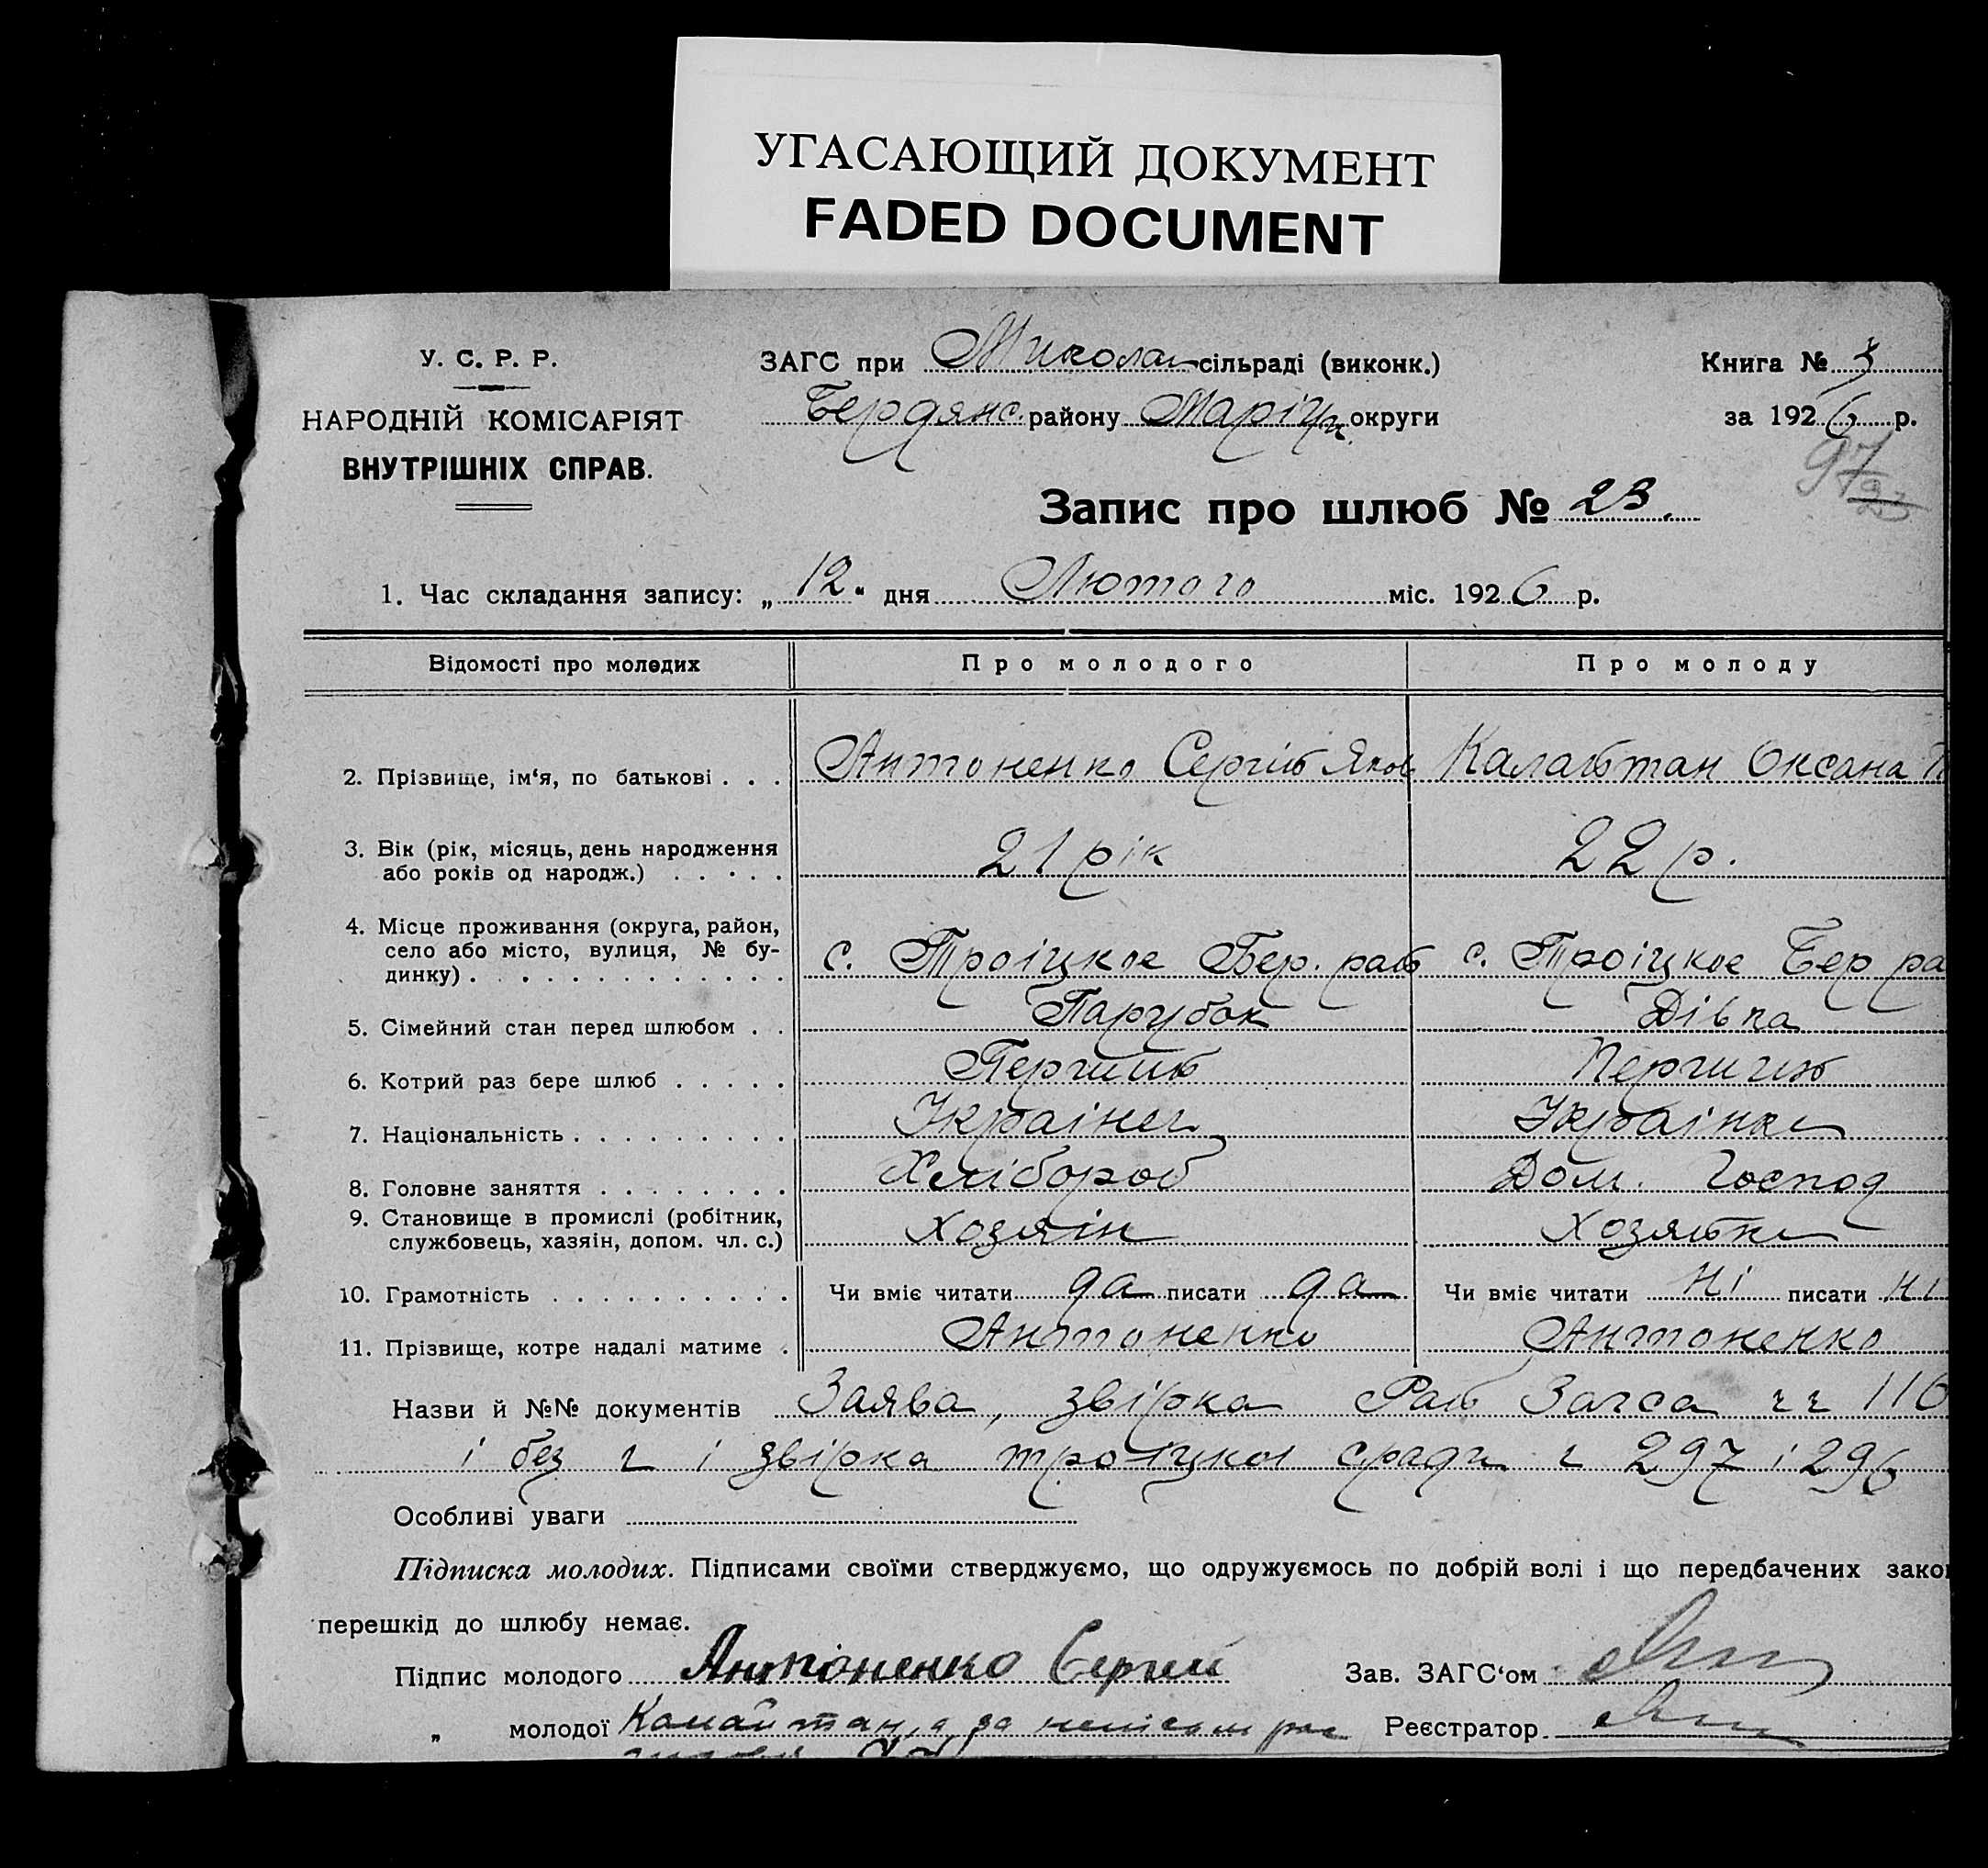 УГАСАЮЩИЙ ДОКУМЕНТ
FADED DOCUMENT
У. С. Р. Р.
НАРОДНІЙ КОМІСАРІЯТ
ВНУТРІШНІХ СПРАВ.
ЗАГС при Микола сільраді (виконк.)
Бердянс. району Маріуп. округи
Книга № 3
за 1926 р.
97
Запис про шлюб № 23.
1. Час складання запису: „12“ дня Лютого міс. 1926 р.
Відомості про молодих Про молодого Про молоду
2. Прізвище, ім‘я, по батькові . . . Антоненко Сергій Яков Калайтан Оксана
3. Вік (рік, місяць, день народження
або років од народж.) . . . . . 21 рік 22 р.
4. Місце проживання (округа, район,
село або місто, вулиця, № бу-
динку) . . . . . . . . . . . . с. Троіцкое Бер. рай с. Троіцкое Бер ра
5. Сімейний стан перед шлюбом . . Парубок Дівка
6. Котрий раз бере шлюб . . . . . Перший Перший
7. Національність . . . . . . . . . Украінец Украінка
8. Головне заняття . . . . . . . . Хлібороб Дом. Господ
9. Становище в промислі (робітник,
службовець, хазяін, допом. чл. с.) Хозяін Хозяйка
10. Грамотність . . . . . . . . . . Чи вміє читати да писати да Чи вміє читати ні писати ні
11. Прізвище, котре надалі матиме . Антоненко Антоненко
Назви й №№ документів Заява, звірка Рай Загса чч 116
і без ч і звірка троіцкоі сради ч 297 і 296
Особливі уваги
Підписка молодих. Підписами своїми стверджуємо, що одружуємось по добрій волі і що передбачених зако
перешкід до шлюбу немає.
Підпис молодого Антоненко Сергей Зав. ЗАГС‘ом
„ молодої за Реєстратор